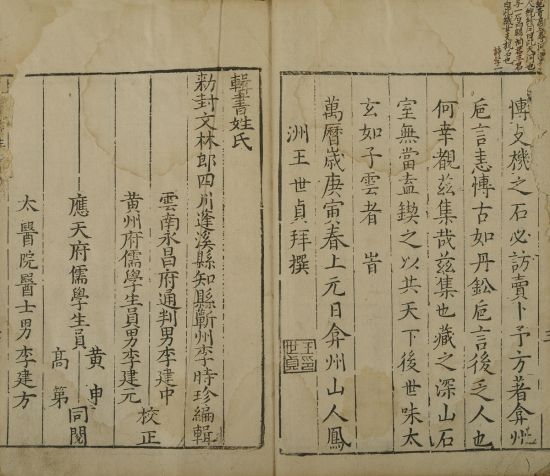 博支機之石必訪賣卜予方著弇州
卮言恚博古如丹鉛卮言後乏人也
何幸覩茲集哉茲集也藏之深山石
室無當盍鍥之以共天下後世味太
玄如子雲者 旹
萬曆歲庚寅春上元日弇州山人鳳
洲王世貞拜撰
輯書姓氏
勑封文林郎四川蓬溪縣知縣蘄州李時珍編輯
雲南永昌府通判男李建中
黃州府儒學生員男李建元
校正
應天府儒學生員
黃申
高第
同閱
太醫院醫士男李建方